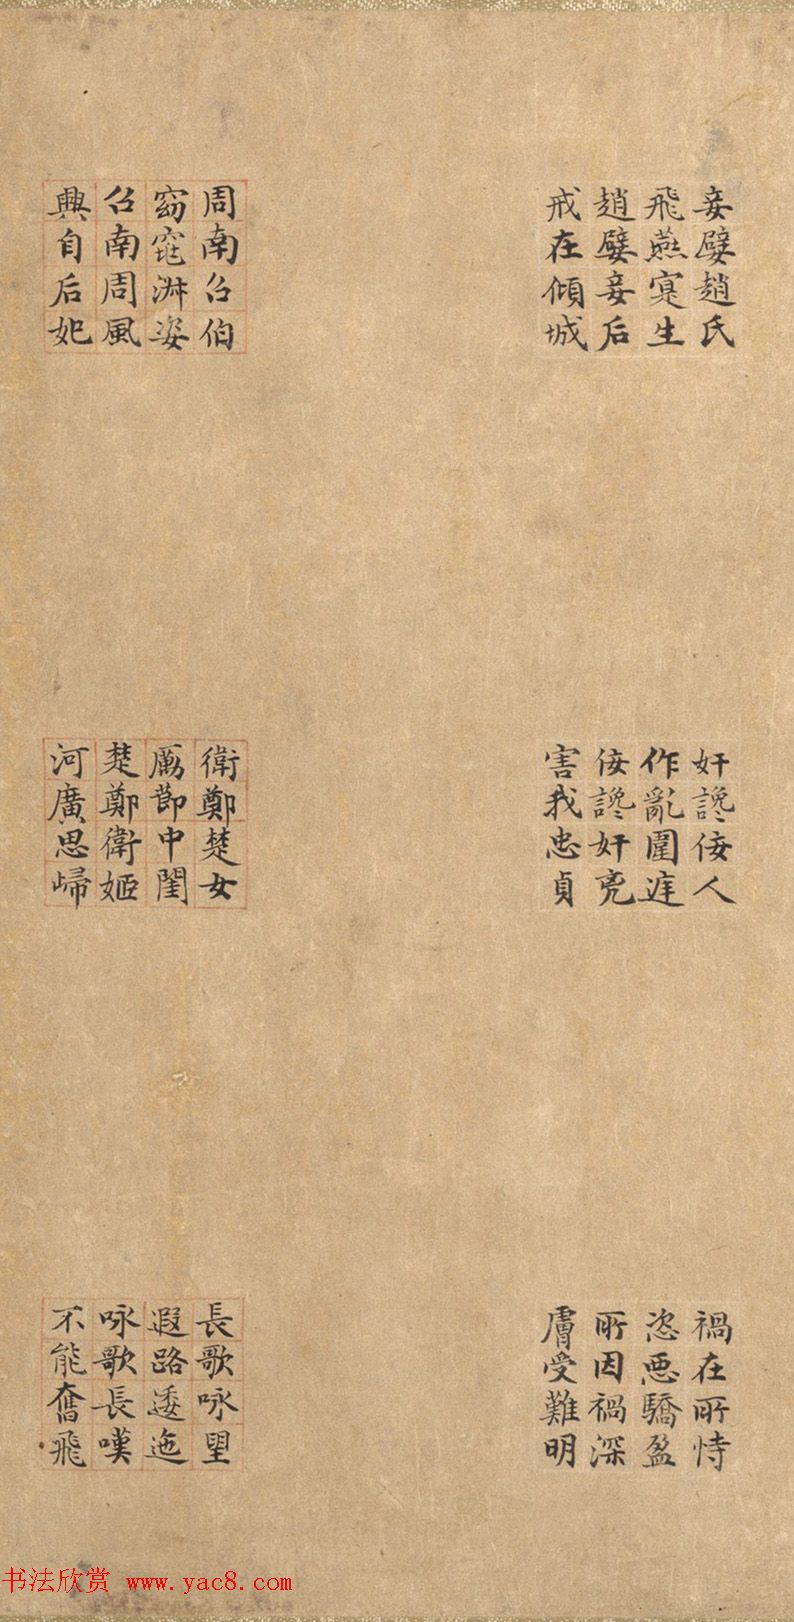 妾嬖趙氏
飛燕寔生
趙嬖妾后
戒在傾城
奸讒佞人
作亂圍庭
佞讒奸兇
害我忠貞
禍在所恃
恣惡驕盈
所因禍深
膚受難明
周南召伯
窈窕淑姿
召南周風
興自后妃
衛鄭楚女
厲節中閨
楚鄭衛姬
河廣思歸
長歌咏望
遐路逶迤
咏歌長嘆
不能奮飛
书法欣赏 www.yac8.com